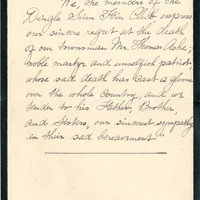 We, the members of the
Dingle Sinn Fein Club express
our sincere regret at the death
of our townsman Mr. Thomas Ashe;
noble martyr and unselfish patriot,
whose sad death has cast a gloom
over the whole country, and we
tender to his Father, Brother,
and Sisters, our sincerest sympathy
in their sad bereavement"